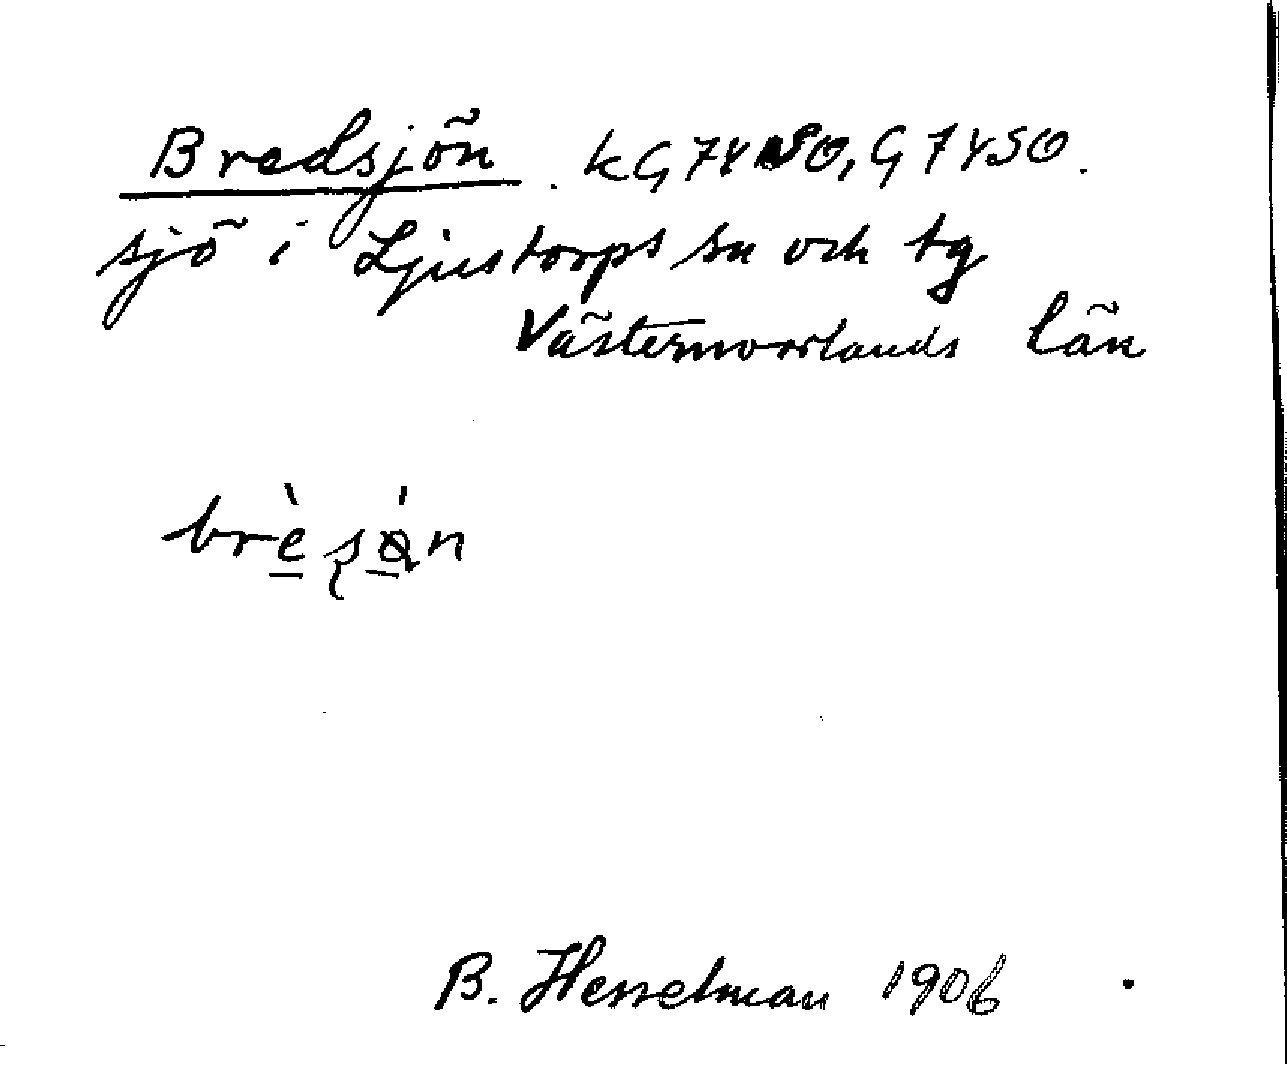 Bredsjön. kG74SO, G74SO.
sjö i Ljustorps sn och tg
Västernorrlands län
B. Hesselman 1906